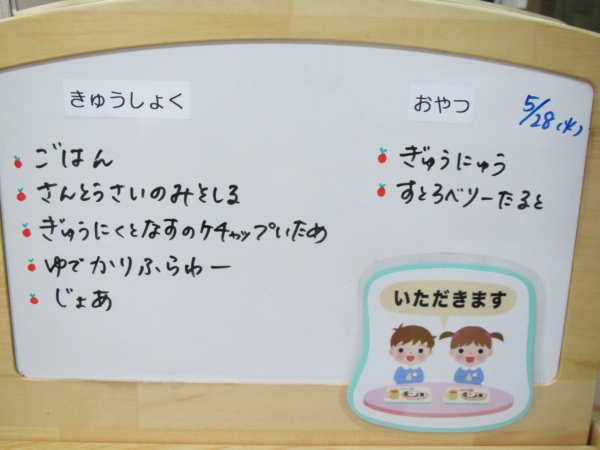 きゅうしょく
ごはん
さんとうさいのみそしる
ぎゅうにくとなすのケチャップいため
ゆでかりふらわー
じょあ
おやつ
5/28(火)
ぎゅうにゅう
すとろベリーたると
いただきます